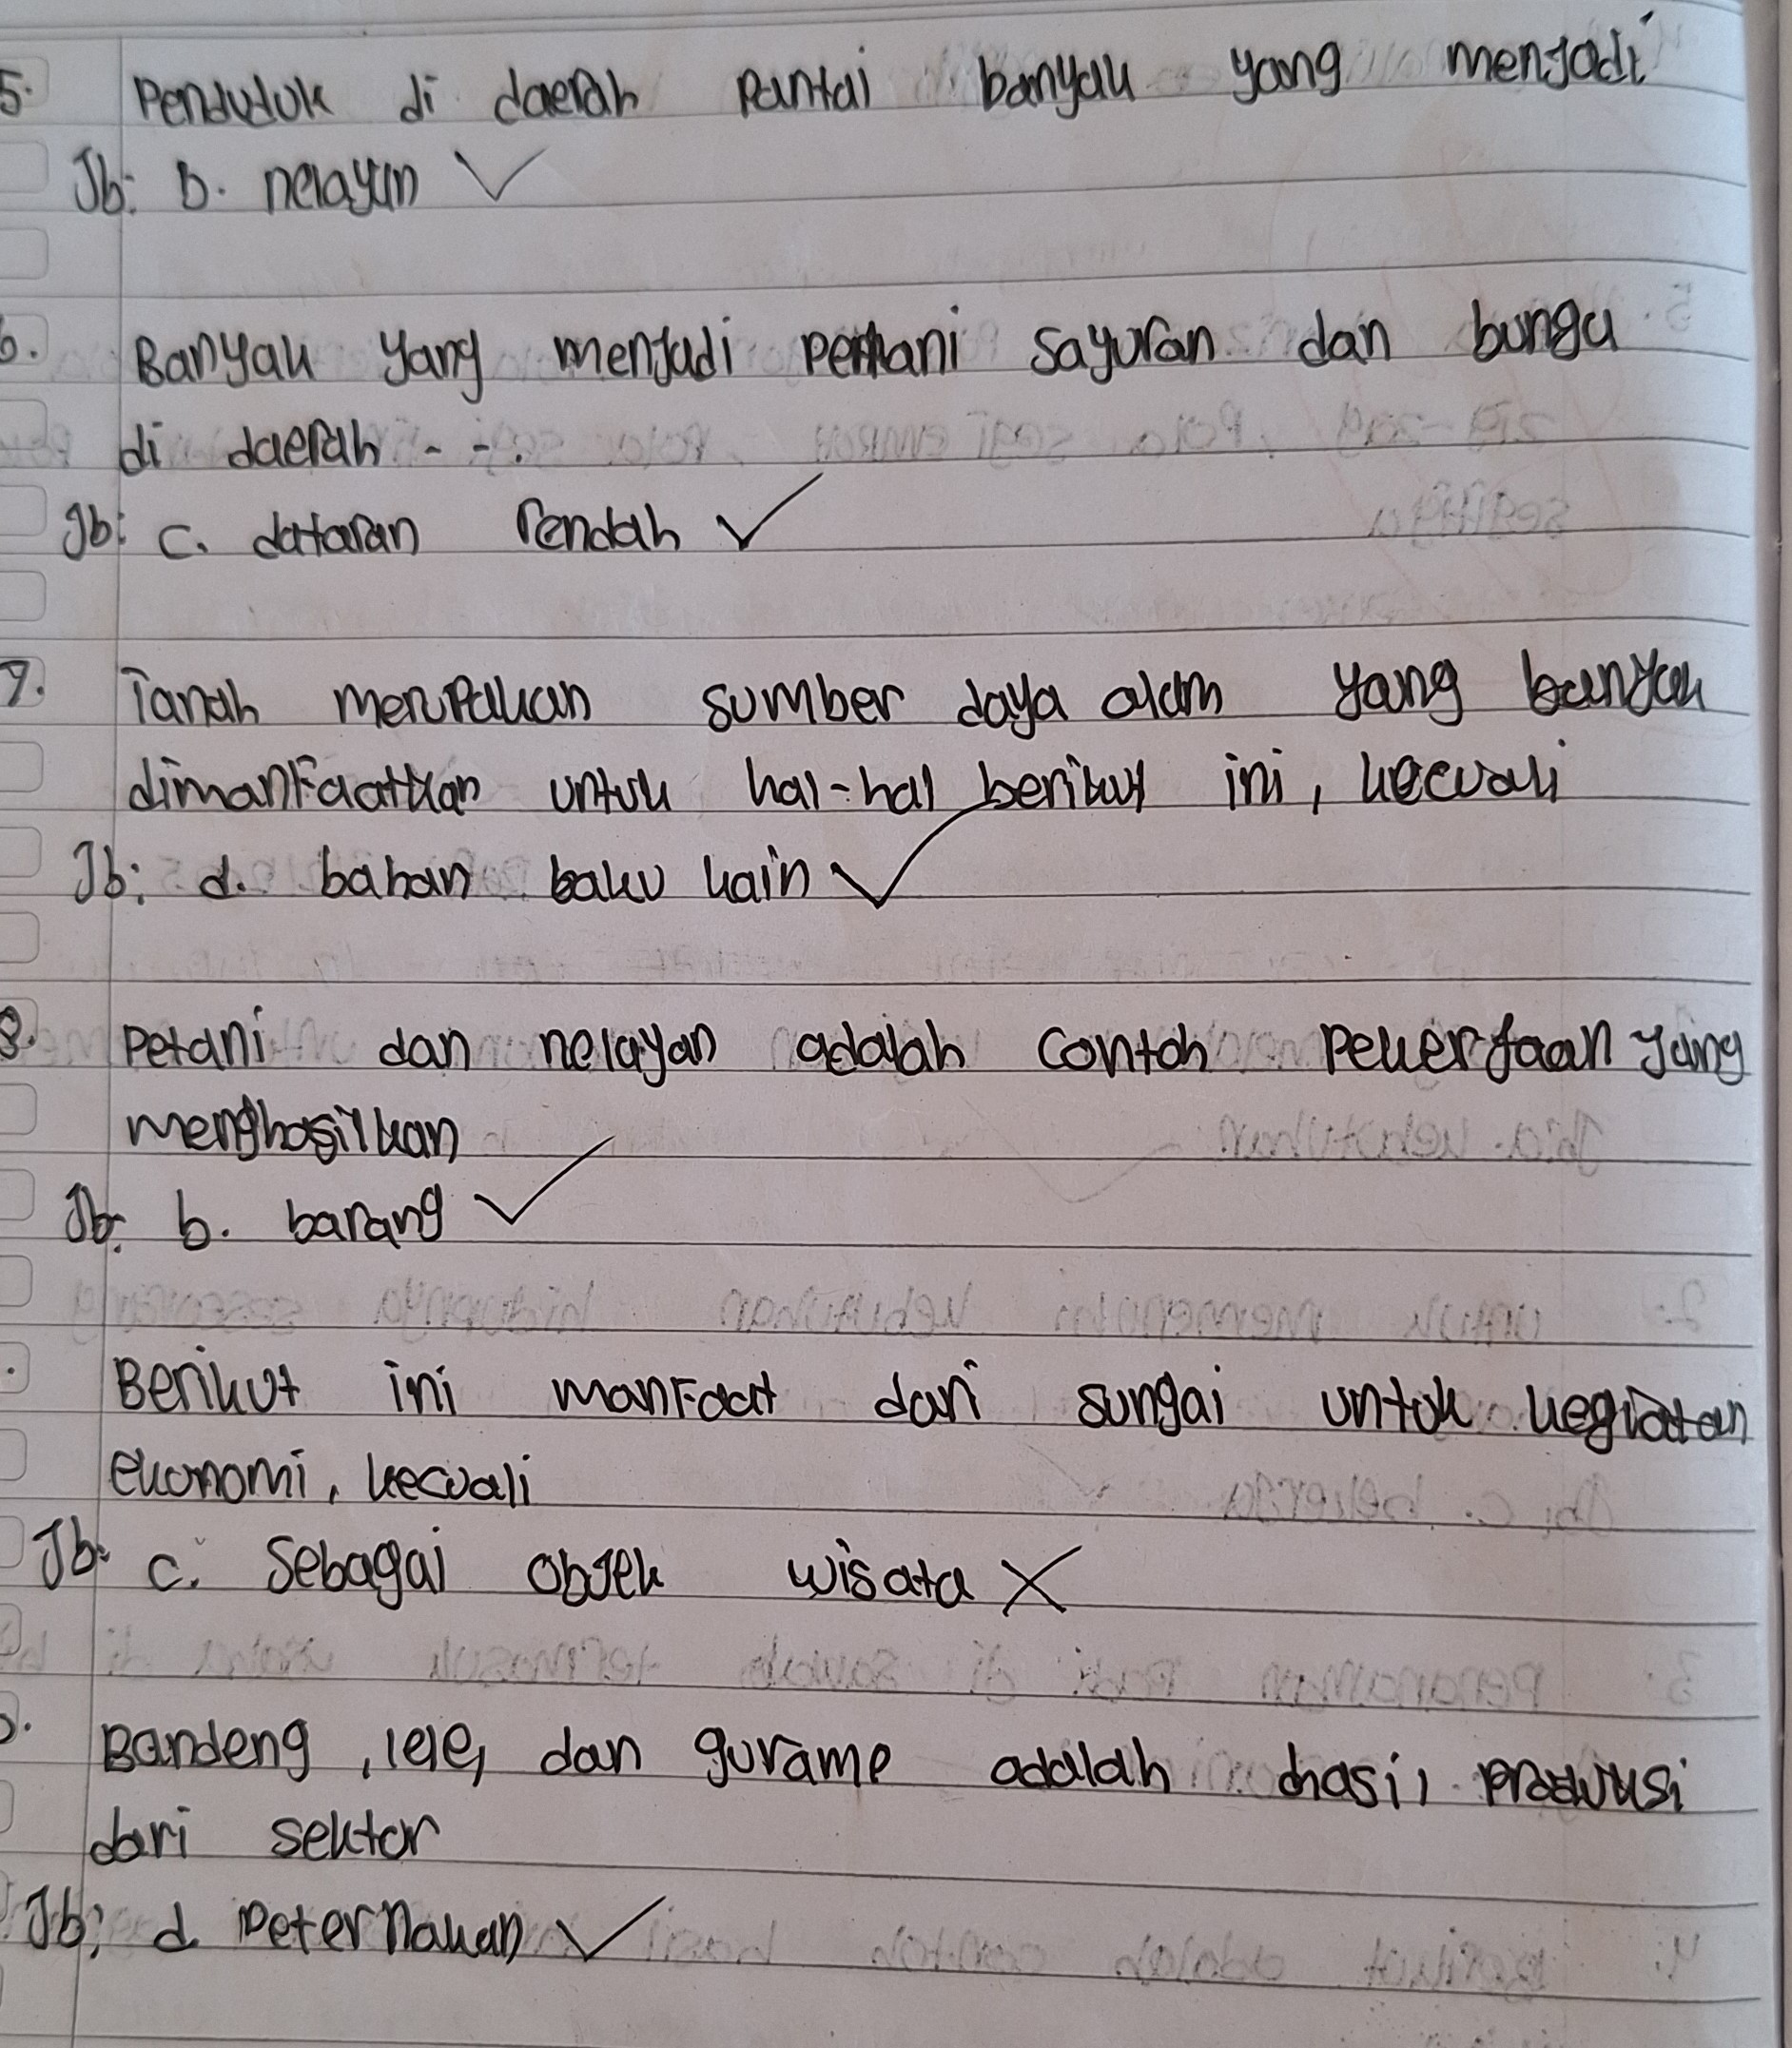 5. Penduduk di daerah Pantai banyak yang menjadi
Jb: b. nelayan ✓
6. Banyak yang menjadi petani sayuran dan bunga
di daerah - - .
Jb: c. dataran rendah ✓
7. Tanah merupakan sumber daya alam yang banyak
dimanfaatkan untuk hal-hal berikut ini, kecuali
Jb: d. bahan baku kain ✓
8. Petani dan nelayan adalah contoh pekerjaan yang
menghasilkan
Jb: b. barang ✓
. Berikut ini manfaat dari sungai untuk kegiatan
ekonomi, kecuali
Jb: c. Sebagai objek wisata X
. Bandeng, lele, dan gurame adalah hasil produksi
dari sektor
Jb: d. Peternakan ✓